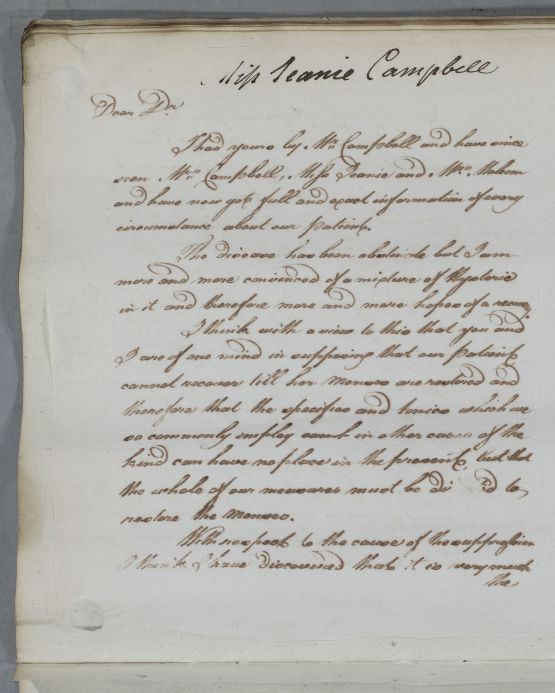 Miss Jeanie Campbell
Dear Dr
I had yours by Mr. Campbell and have since
seen Mrs. Campbell, Miss Jeanie and Mrs. Malcom
and have now got full and exact information of every
circumstance about our patient.
The disease has been obstinate but I am
more and more convinced of a mixture of Hysteric
in it and therefore more and more hopes of a
I think with a view to this that you and
I are of one mind in supposing that our patient
cannot recover till her menses are restored and
therefore that the specifics and tonics which we
so commonly employ in other cases of the
kind can have no place in the present, but that
the whole of our measures must be to
restore the menses.
With respect to the cause of the suppression
I think I have discovered that it is very much
the